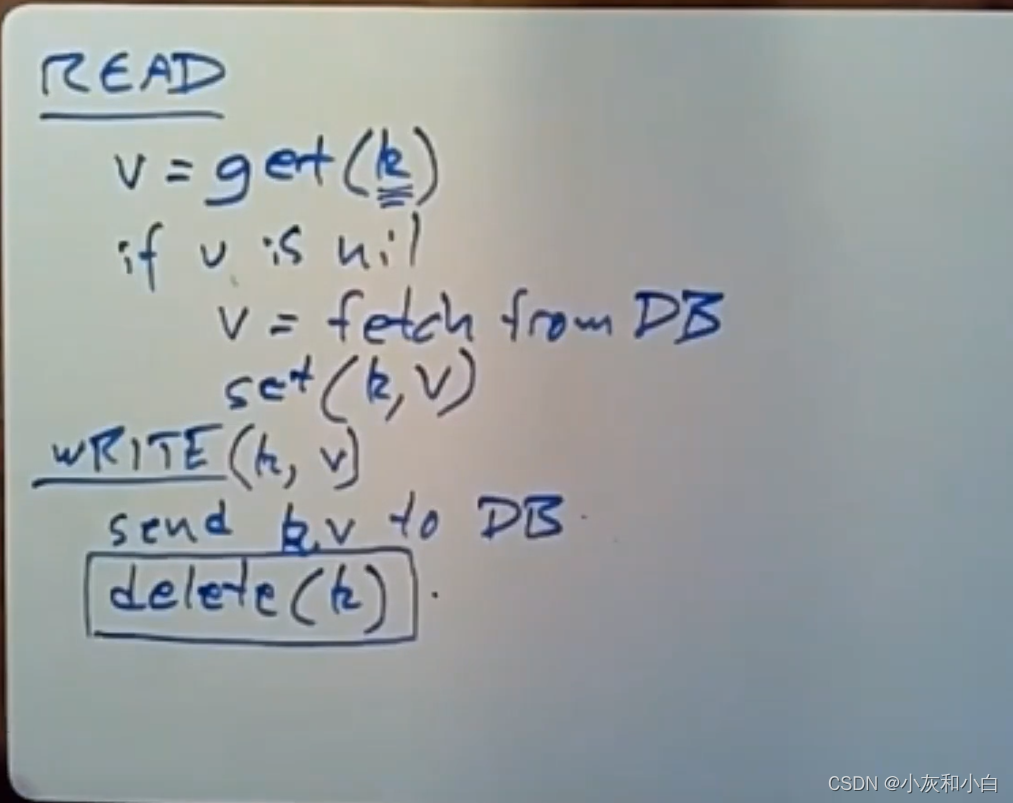 READ
v = get(k)
if v is nil
v = fetch from DB
set(k, v)
WRITE(k, v)
send k,v to DB
delete(k).
CSDN @小灰和小白